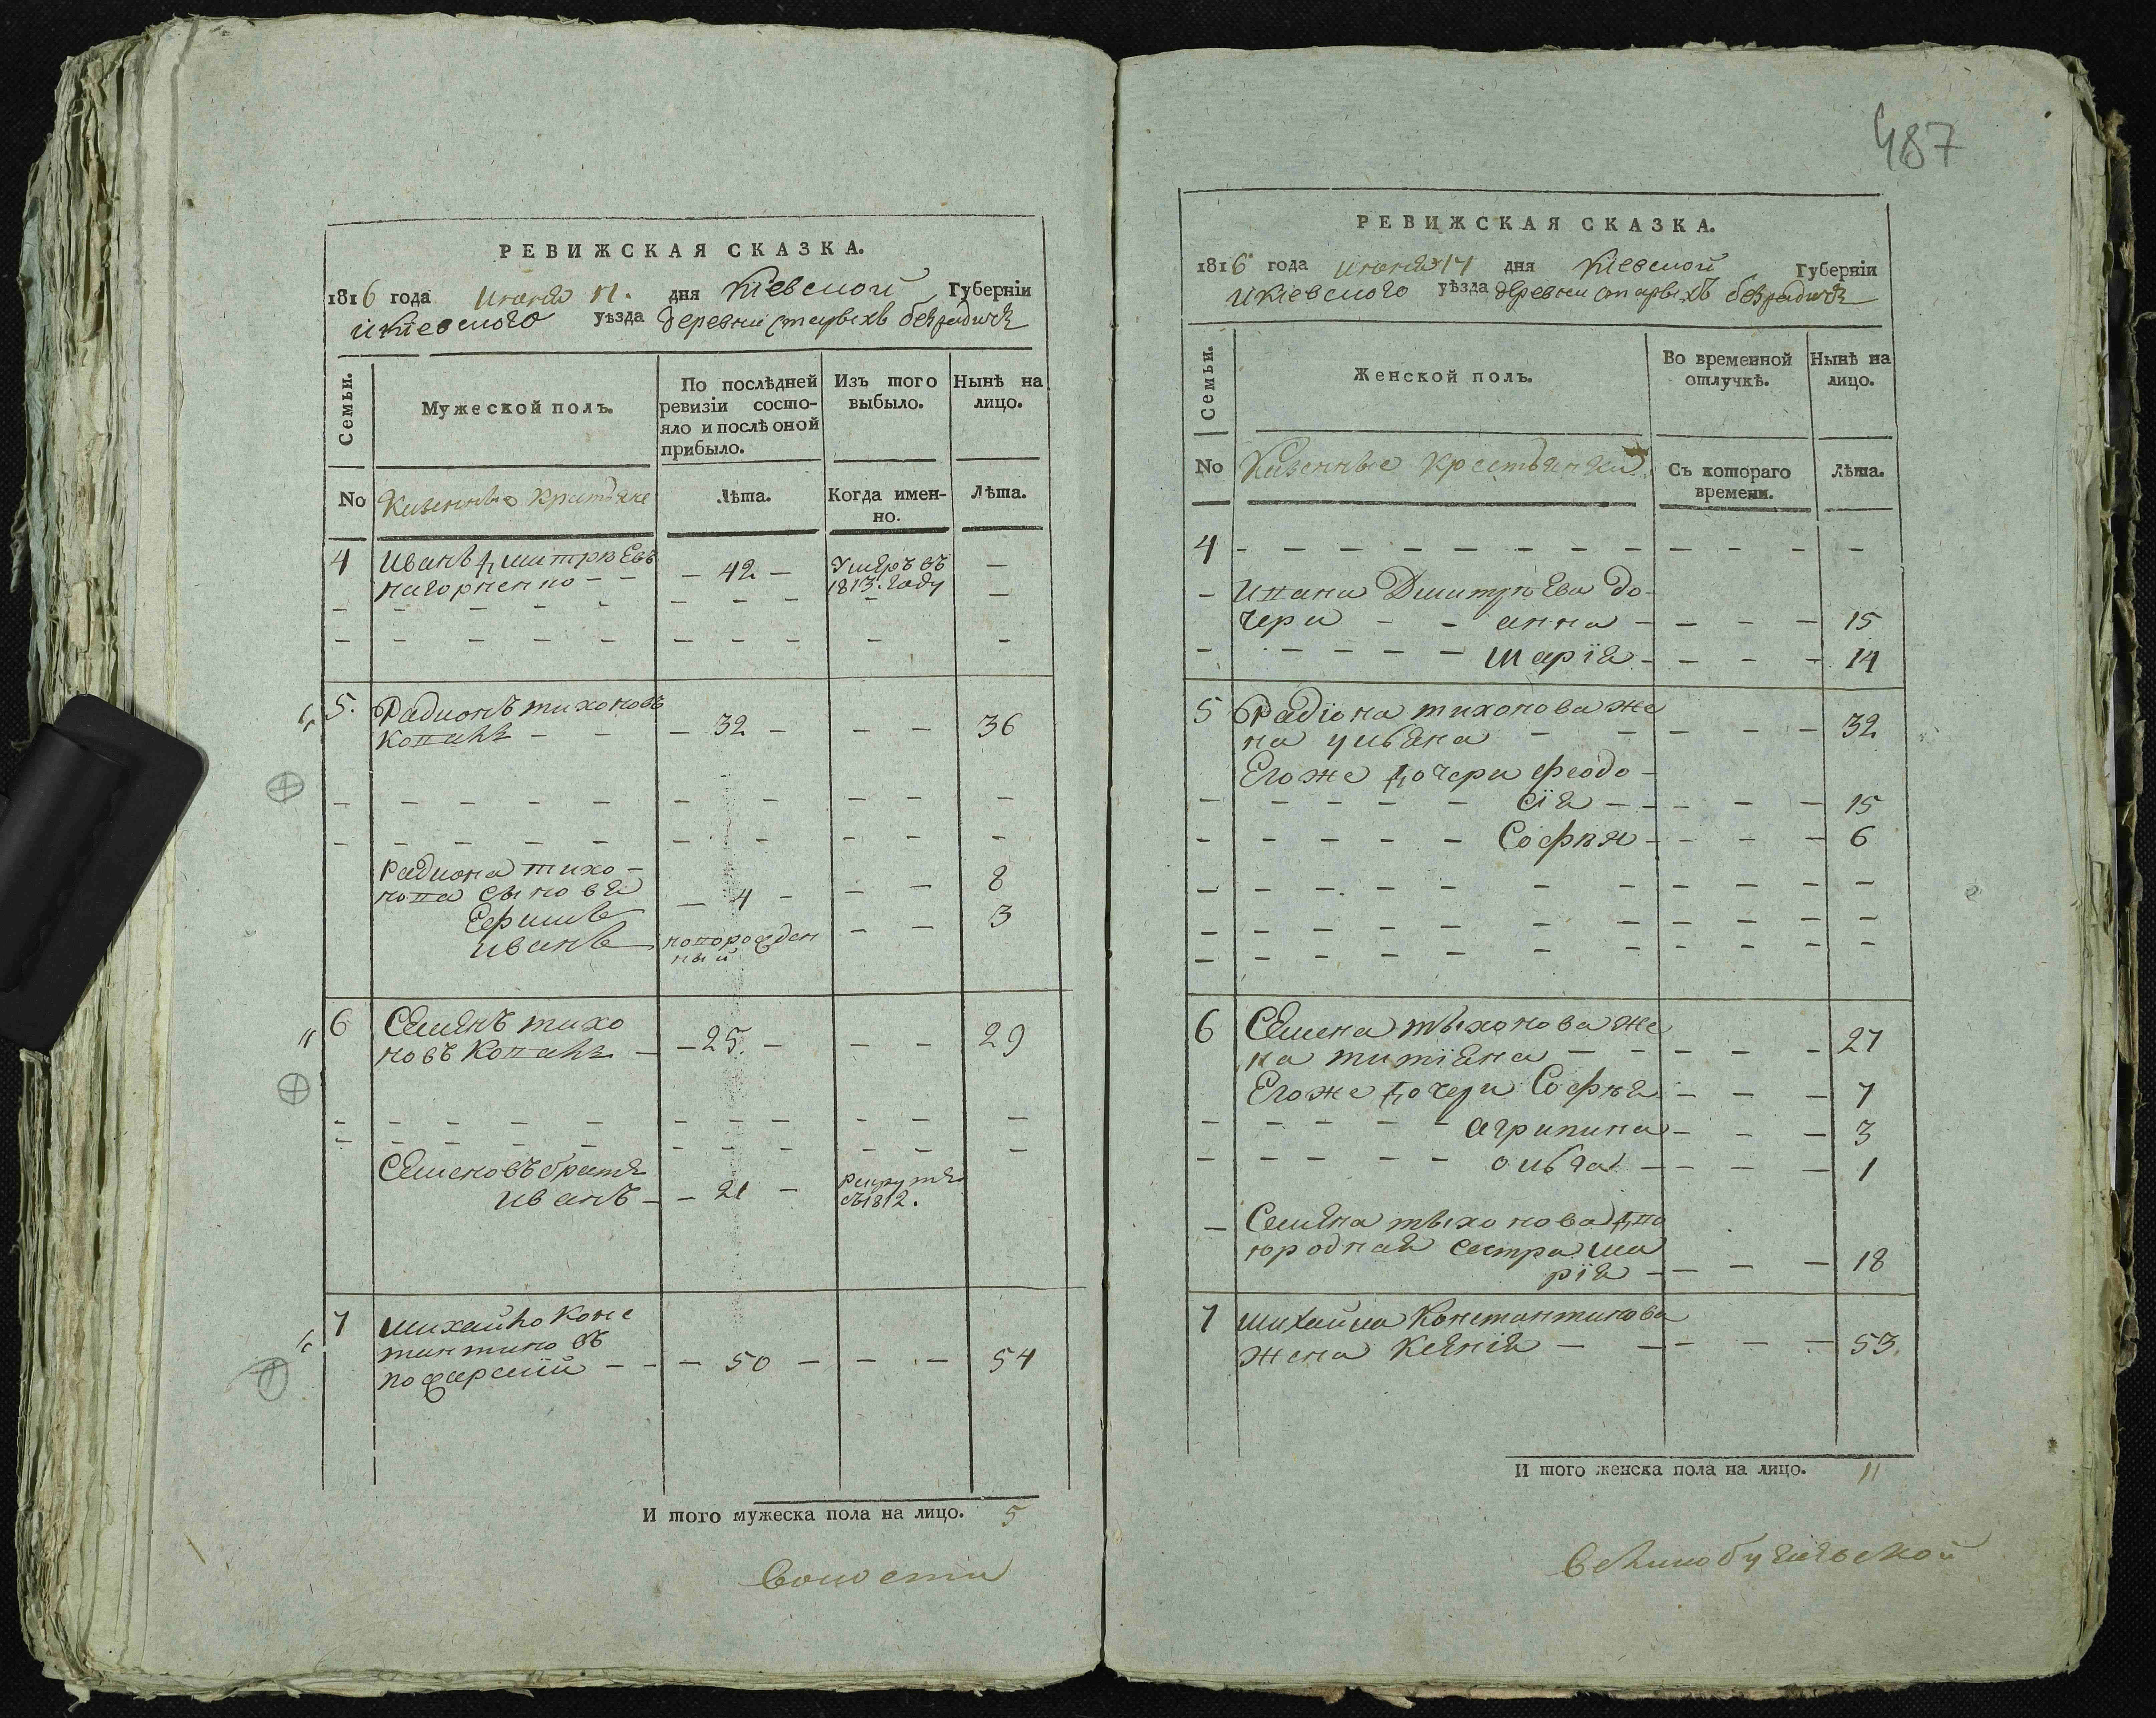 РЕВИЖСКАЯ СКАЗКА.
1816 года июня дня Кіевской Губерніи
и Кіевского уѣзда деревни старыхъ безрадичъ
Семьи.
Мужеской полъ.
По послѣдней
ревизіи состо-
яло и послѣ оной
прибыло.
Изъ того
выбыло.
Нынѣ на
лицо.
No Казенные крестьяне
Лѣта.
Когда имен-
но.
Лѣта.
4 Иванъ Дмитрѣевъ
нагорненко - - 42 - Умеръ въ
1813. году
5. Радионъ тихоновъ
Копачъ - - 32 - - - 36
Радиона тихо-
нова сыновя
Ефимъ - 4 - - - 8
Иванъ новорожден
ный - - 3
6 Семенъ тихо
новъ Копачъ - - 25. - - - 29
Семеновъ братъ
иванъ - - 21 - рекрутъ
въ 1812.
7 Михайло Конс
тантиновъ
пожарский - - - 50 - - - 54
И того мужеска пола на лицо. 5
Волости
487
РЕВИЖСКАЯ СКАЗКА.
1816 года июня 17 дня Кіевской Губерніи
и Кіевского уѣзда деревни старыхъ безрадичъ
Семьи.
Женской полъ.
Во временной
отлучкѣ.
Нынѣ на
лицо.
No Казенные крестьянки
Съ котораго
времени.
Лѣта.
4 - - - - - - - - - - - - -
- Ивана Дмитрѣева до-
чери - - анна - - - - 15
- - - - - - Марія - - - - 14
5 Радіона тихонова же
на ульяна - - - - - 32
Егоже дочери феодо-
- - - - - - сія - - - - - 15
- - - - - - Софья - - - - 6
6 Семена тыхонова же
на титіяна - - - - - 27
Егоже дочери Софья - - - 7
- - - - - - агрипина - - - 3
- - - - - - ольга - - - - 1
- Семена тыхонова дво
юродная сестра ма
рія - - - - 18
7 Михайла Константинова
жена Ксенія - - - - - 53.
И того женска пола на лицо. 11
великобугаевской